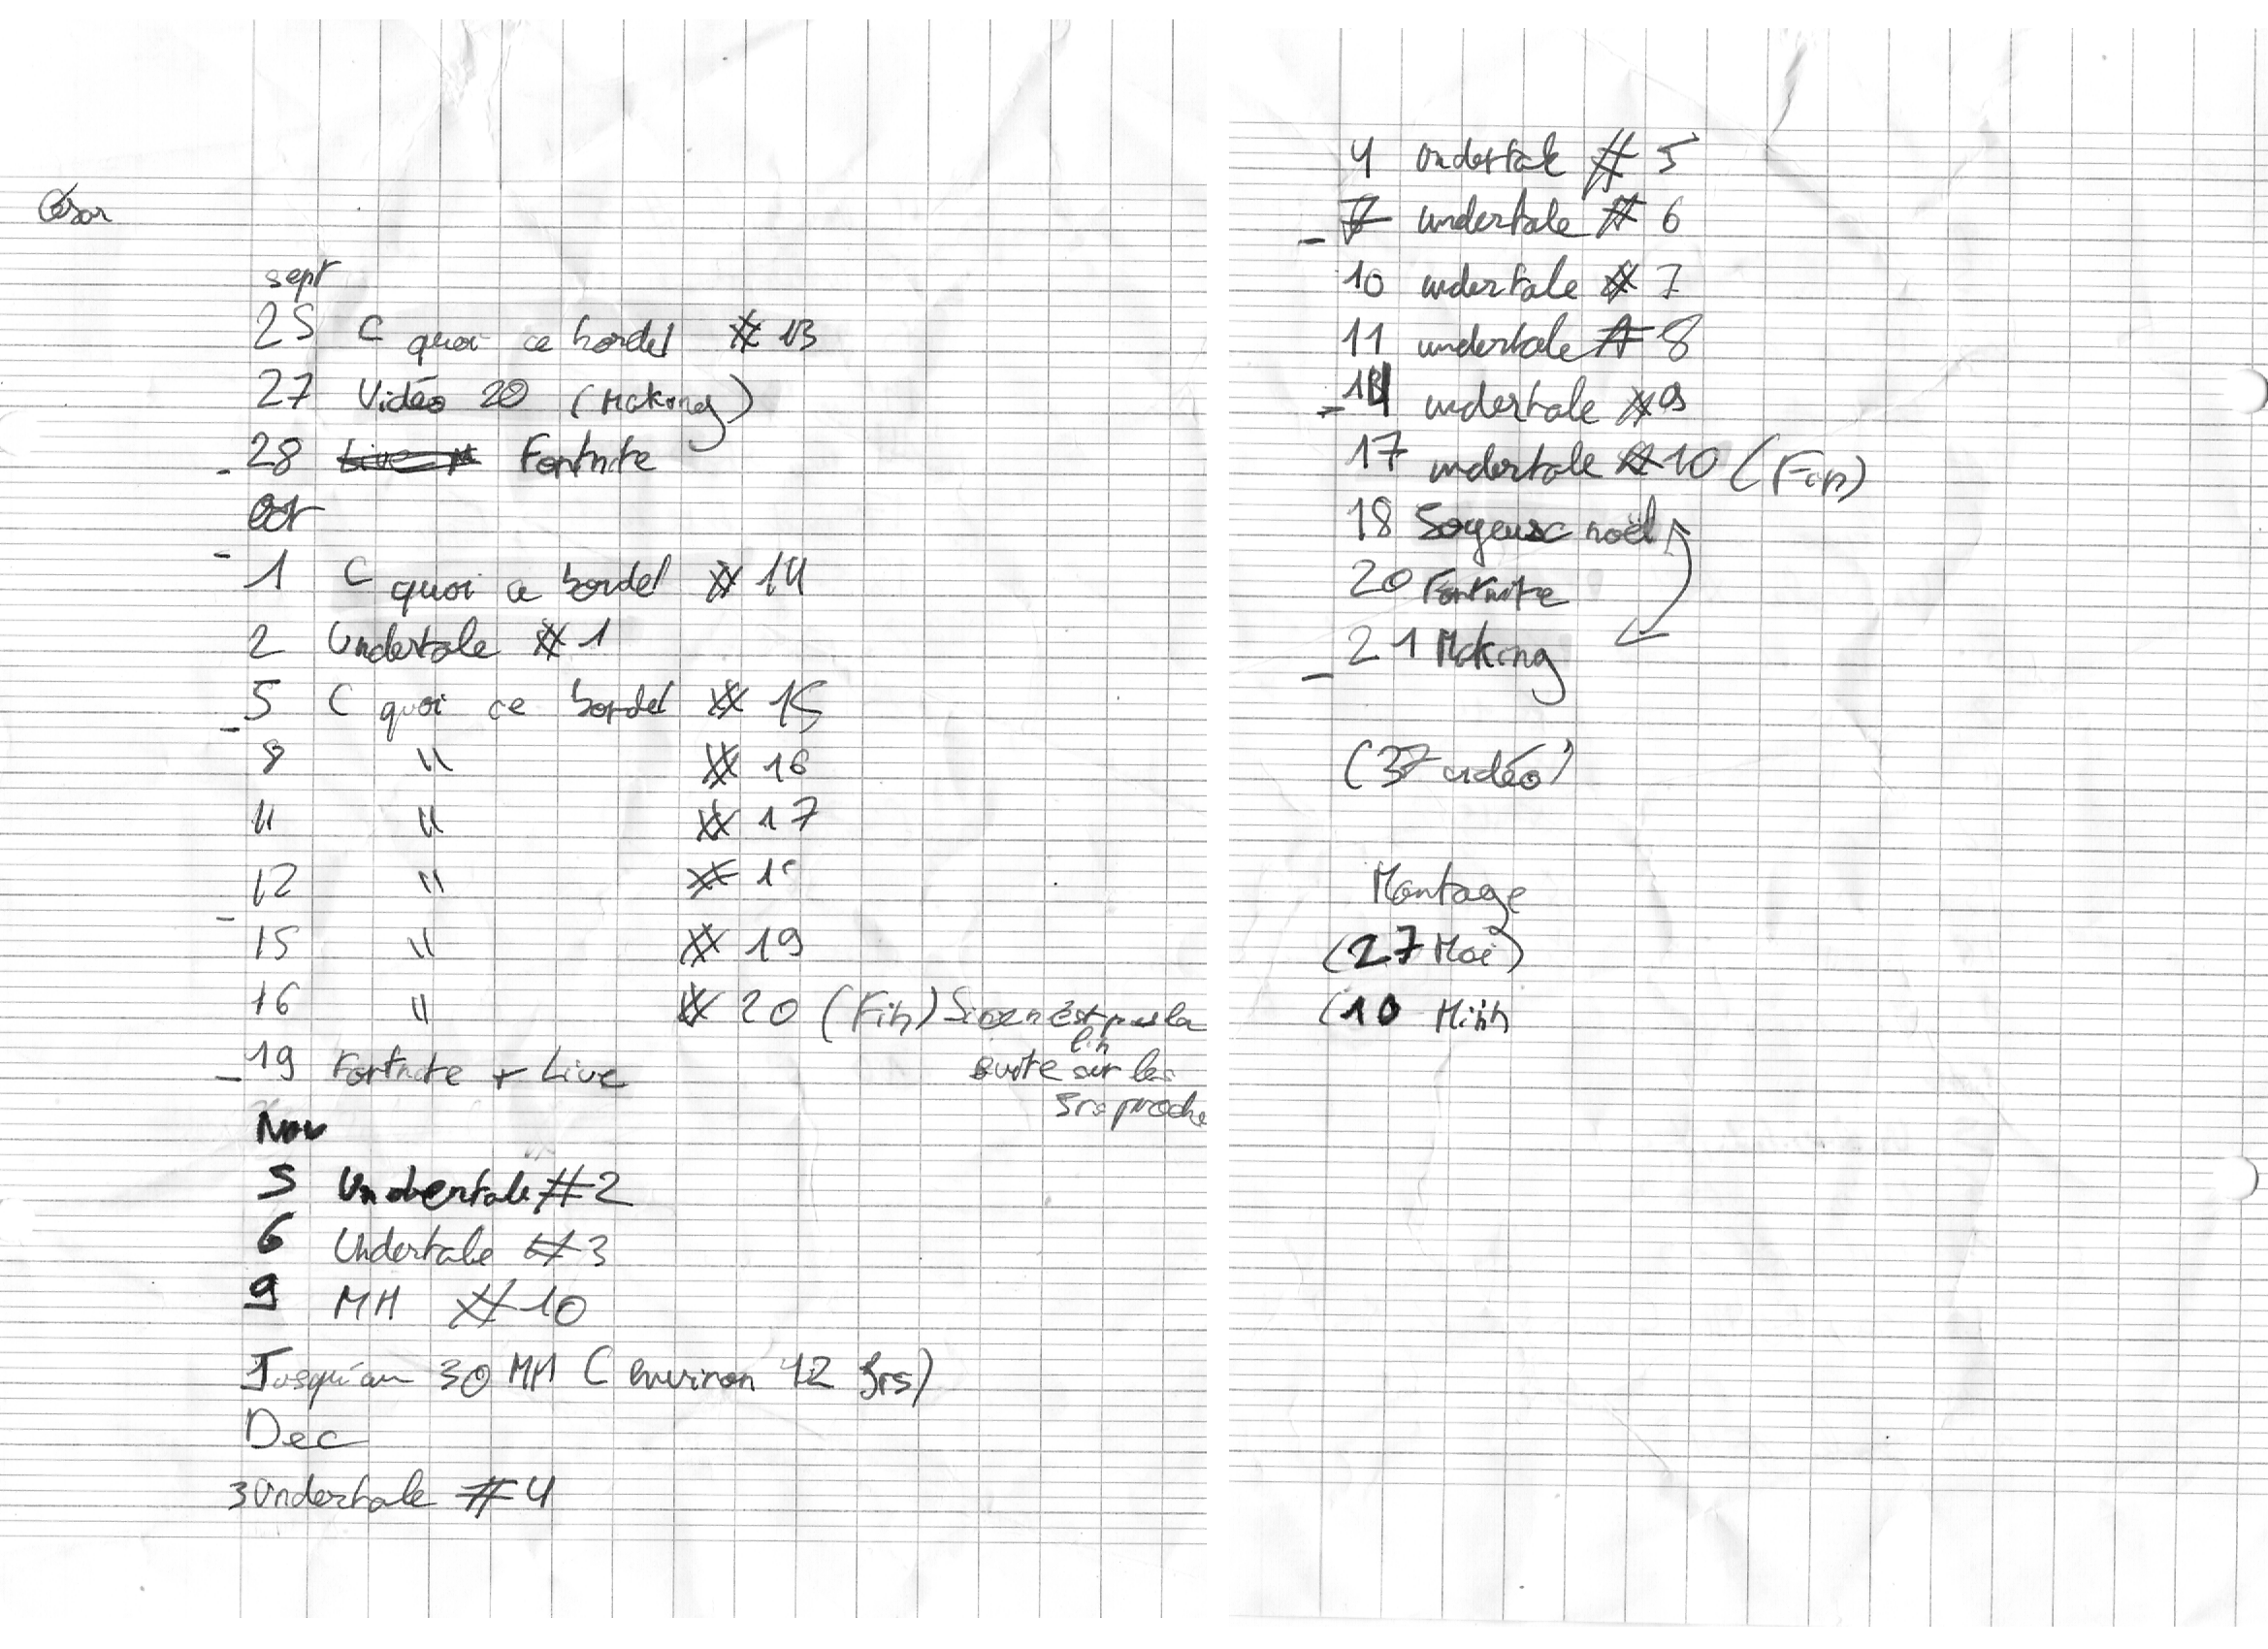 César
sept
25 C quoi ce bordel # 13
27 Vidéo 20 (Making)
- 28 Fortnite
oct
- 1 C quoi ce bordel # 14
2 Undertale # 1
- 5 C quoi ce bordel # 15
8 " # 16
11 " # 17
12 " #
- 15 " # 19
16 " # 20 (Fin) Si on n'est pas la
fin
suite sur les
jrs proche
- 19 Fortnite + Live
Nov
5 Undertale #2
6 Undertale #3
9 MH #10
Jusqu'au 30 MH (environ 12 jrs)
Dec
3 Undertale #4
4 Undertale # 5
- 7 undertale # 6
10 undertale # 7
11 undertale # 8
- 14 undertale #9
17 undertale #10 (Fin)
18 Joyeux noël
20 Fortnite
- 21 Making
(37 vidéo)
Montage
(27 Moi)
(10 Minh